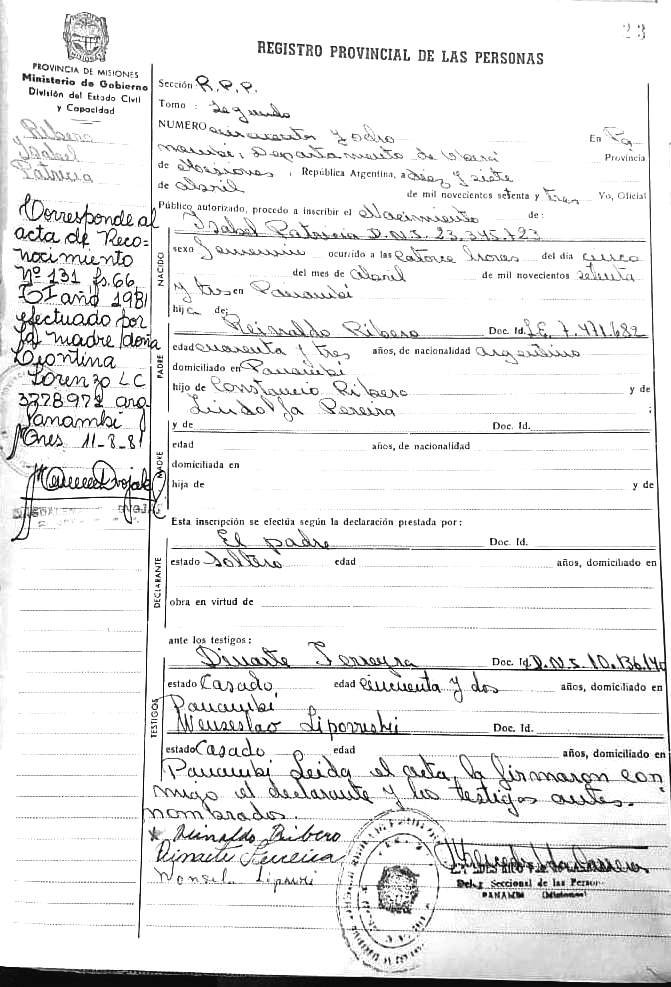 23
REGISTRO PROVINCIAL DE LAS PERSONAS
PROVINCIA DE MISIONES
Ministerio de Gobierno
División del Estado Civil
y Capacidad
Ribero
Ysabel
Patricia
Corresponde al
acta de Reco-
nocimiento
Nº 131 fs. 66
TI año 1981
efectuado por
la madre doña
Leontina
Lorenzo LC
3778972 arg
Panambi
Mnes. 11-8-81
Sección R.P.P.
Tomo: Segundo
NUMERO cuarenta y ocho En Pa
nambi, Departamento de Oberá Provincia
de Misiones, República Argentina, a diez y siete
de Abril de mil novecientos setenta y tres Yo, Oficial
Público autorizado, procedo a inscribir el Nacimiento de:
NACIDO
Ysabel Patricia D.N.I. 23.345.723
sexo femenino ocurrido a las catorce horas del día cinco
del mes de Abril de mil novecientos setenta
y tres en Panambi
hija de:
PADRE
Reinaldo Ribero Doc. Id. L.E. 7.471.682
edad cuarenta y tres años, de nacionalidad argentino
domiciliado en Panambi
hijo de Constancio Ribero y de
Lindolfa Pereira ;
MADRE
y de Doc. Id.
edad años, de nacionalidad
domiciliada en
hija de y de
Esta inscripción se efectúa según la declaración prestada por:
DECLARANTE
El padre Doc. Id.
estado soltero edad años, domiciliado en
obra en virtud de
ante los testigos:
TESTIGOS
Duarte Ferreyra Doc. Id. D.N.I. 10.136.140
estado Casado edad cincuenta y dos años, domiciliado en
Panambi
Wenseslao Doc. Id.
estado Casado edad años, domiciliado en
Panambi Leida el acta, la firmaron con-
migo el declarante y los testigos antes-
nombrados.
Reinaldo Ribero
Seccional de las Person
PANAMBI (Misiones)